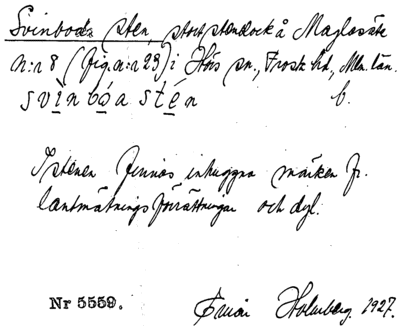 Svinboda sten, stort stenblock å Maglasäte
n:r 8 (fig. n:r 23) i Hörs sn., Frosta hd., Mlm. län.
svinbóa stén b.
I stenen finnas inhuggna märken fr.
lantmätningsförrättningar och dyl.
Nr 5559. Einar Holmberg. 1927.